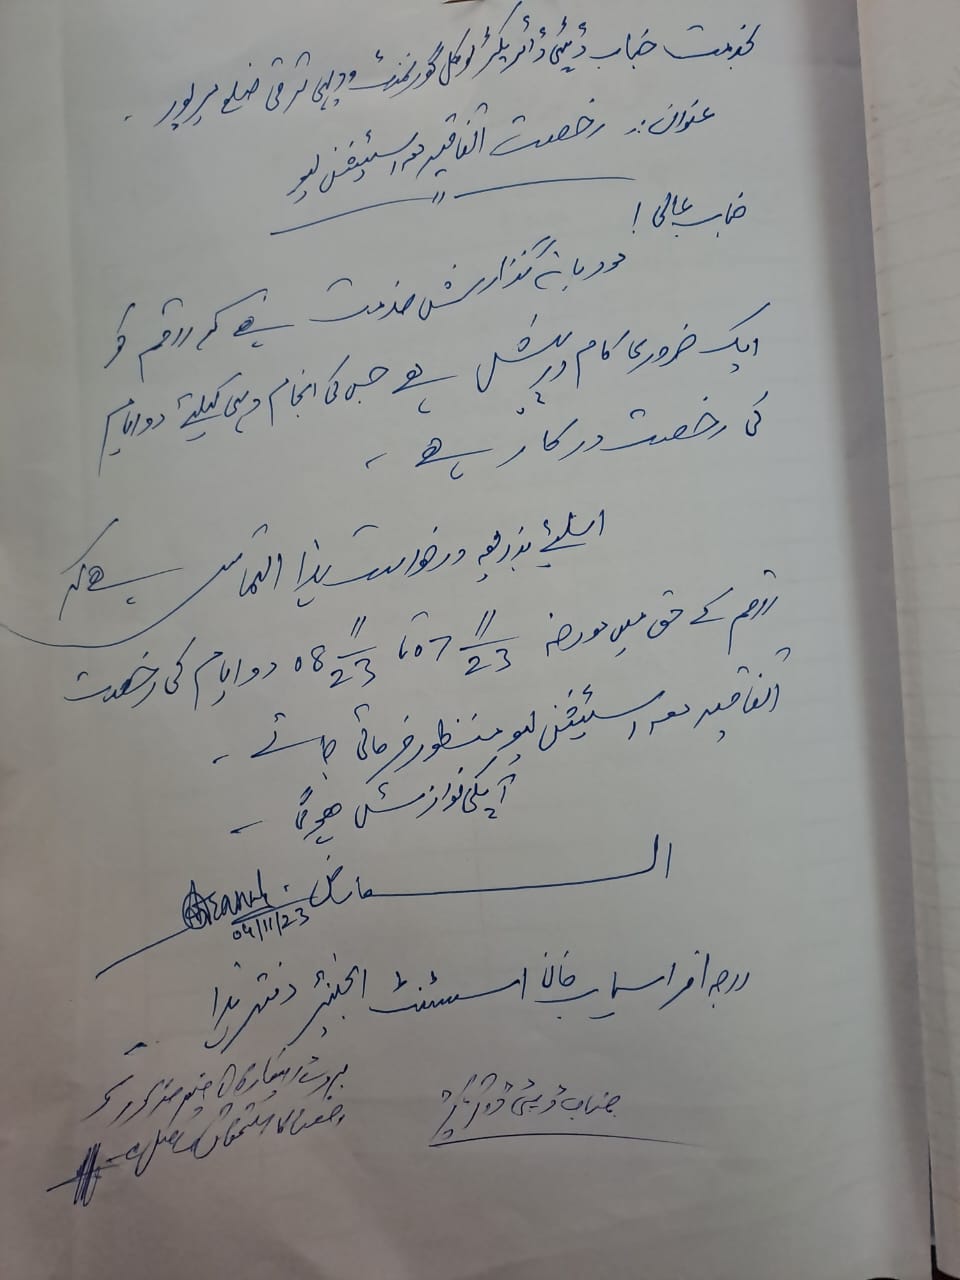 بخدمت جناب ڈپٹی ڈائریکٹر لوکل گورنمنٹ و دیہی ترقی ضلع میرپور ۔
عنوان :۔ رخصت اتفاقیہ معہ اسٹیشن لیو
جناب عالی !
مودبانہ گذارش خدمت ہے کہ راقم کو
ایک ضروری کام درپیش ہے جس کی انجام دہی کیلئے دو ایام
کی رخصت درکار ہے ۔
اسلیئے بذریعہ درخواست ہذا التماس ہے کہ
راقم کے حق میں مورخہ 07/11/23 تا 08/11/23 دو ایام کی رخصت
اتفاقیہ معہ اسٹیشن لیو منظور فرمائی جائے ۔
آپکی نوازش ہوگی ۔
العارض
04/11/23
راجہ افراسیاب خان اسسٹنٹ انجینئر دفتر ہذا
جناب ڈپٹی ڈائریکٹر
بروئے ریکارڈ
رخصت کا استحقاق حاصل ہے۔